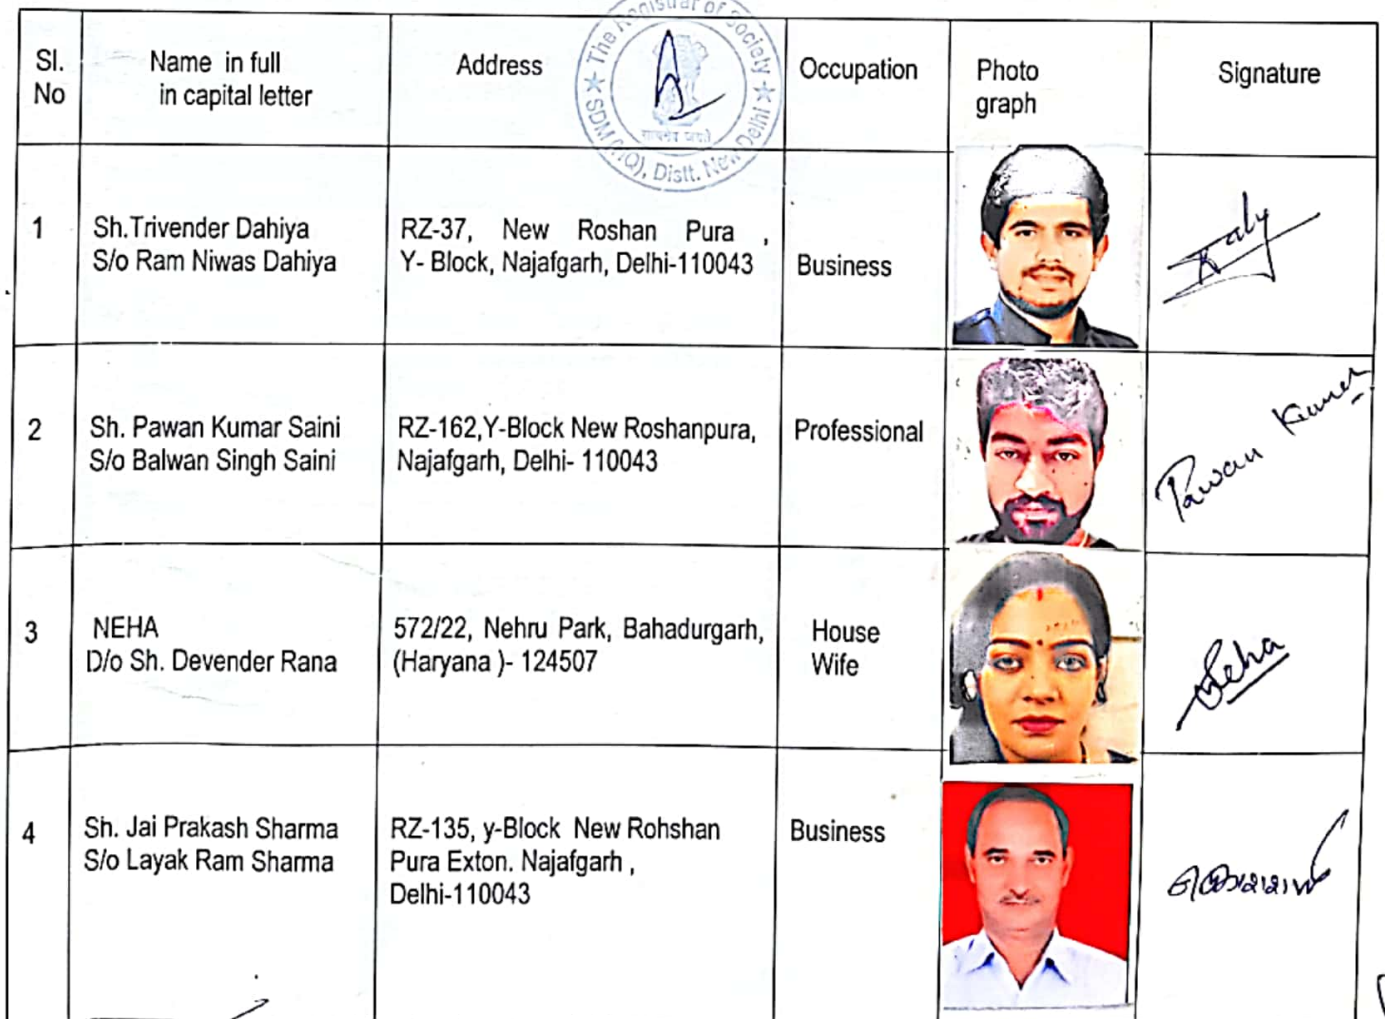 The Registrar of Society
SDM (HQ), Distt. New Delhi
सत्यमेव जयते
Sl. No
Name in full in capital letter
Address
Occupation
Photo graph
Signature
1
Sh.Trivender Dahiya
S/o Ram Niwas Dahiya
RZ-37, New Roshan Pura ,
Y- Block, Najafgarh, Delhi-110043
Business
2
Sh. Pawan Kumar Saini
S/o Balwan Singh Saini
RZ-162,Y-Block New Roshanpura,
Najafgarh, Delhi- 110043
Professional
Pawan Kumar
3
NEHA
D/o Sh. Devender Rana
572/22, Nehru Park, Bahadurgarh,
(Haryana )- 124507
House
Wife
Neha
4
Sh. Jai Prakash Sharma
S/o Layak Ram Sharma
RZ-135, y-Block New Rohshan
Pura Exton. Najafgarh ,
Delhi-110043
Business